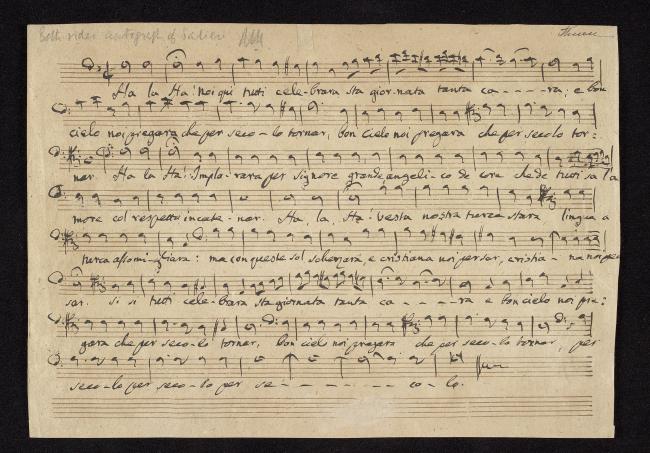 Both sides autograph of Salieri
Ha la Ha! noi qui tuti cele-brara sta gior-nata tanta ca----ra; e bon
cielo noi pregara che per seco-lo tornar, bon cielo noi pregara che per secolo tor:
nar. Ha la Ha! Implo-rara per signore grande angeli-co de core che de tuti sa l'a
more col respetto incate-nar. Ha, la, Ha! vesta nostra turca stara lingua a
turca assomi-gliara: ma con queste sol scherzara, e cristiana noi pensar, cristia-na noi pen
sar. si si tuti cele-brara sta giornata tanta ca----ra e bon cielo noi pre:
gara che per seco-lo tornar, bon cielo noi pregara che per seco-lo tornar, per
seco-lo per seco-lo per se------co-lo.